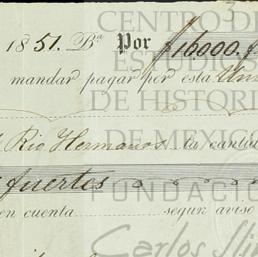 3
1851. Bª Por $16000. $
mandar pagar por esta Una
Rio Hermanos la cantid
fuertes
en cuenta segun aviso
CENTRO DE
ESTUDIOS
DE HISTORIA
DE MEXICO
FUNDACIÓN
Carlos Slim